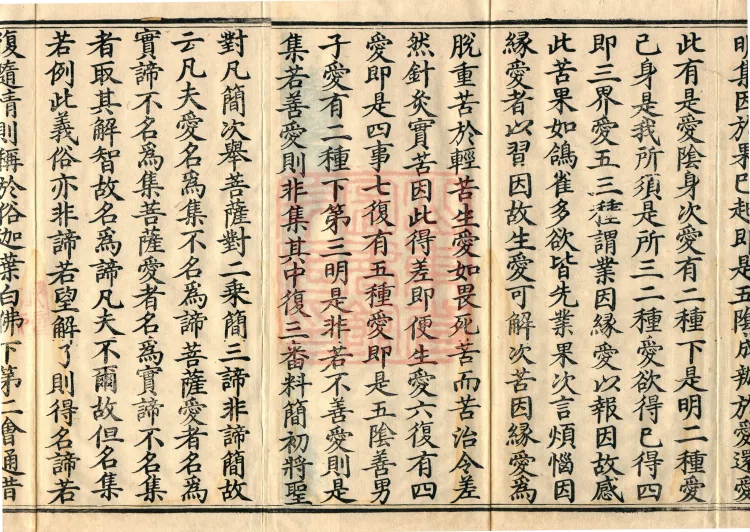 明集因於果已起即是五陰成熟於愛還愛
此有是愛陰身次愛有二種下是明二種愛
己身是我所須是所三二種愛欲得已得四
即三界愛五三種謂業因緣愛以報因故感
此苦果如鴿雀多欲皆先業果次言煩惱因
緣愛者以習因故生愛可解次苦因緣愛爲
脫重苦於輕苦生愛如畏死苦而苦治令差
然針灸實苦因此得差即便生愛六復有四
愛即是四事七復有五種愛即是五陰善男
子愛有二種下第三明是非若不善愛則是
集若善愛則非集其中復三審料簡初將聖
對凡簡次舉菩薩對二乘簡三諦非諦簡故
云凡夫愛名爲集不名爲諦菩薩愛者名爲
實諦不名爲集菩薩愛者名爲實諦不名集
者取其解智故名爲諦凡夫不爾故但名集
若例此義俗亦非諦若望解了則得名諦若
復隨情則稱於俗迦葉白佛下第二會通昔